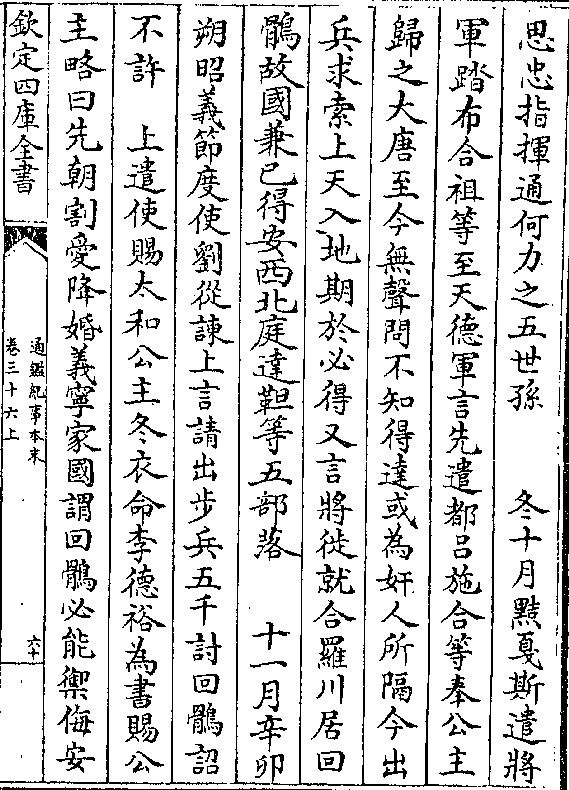 思忠指揮通何力之五世孫　冬十月黠戛斯遣將
軍踏布合祖等至天德軍言先遣都呂施合等奉公主
歸之大唐至今無聲問不知得達或為奸人所隔今出
兵求索上天入地期於必得又言將徙就合羅川居回
鶻故國兼已得安西北庭達靼等五部落　十一月辛卯
朔昭義節度使劉從諫上言請出步兵五千討回鶻詔
不許　上遣使賜太和公主冬衣命李德裕為書賜公
主略曰先朝割愛降婚義寧家國謂回鶻必能禦侮安
欽定四庫全書
通鑑紀事本末
卷三十六上
六十